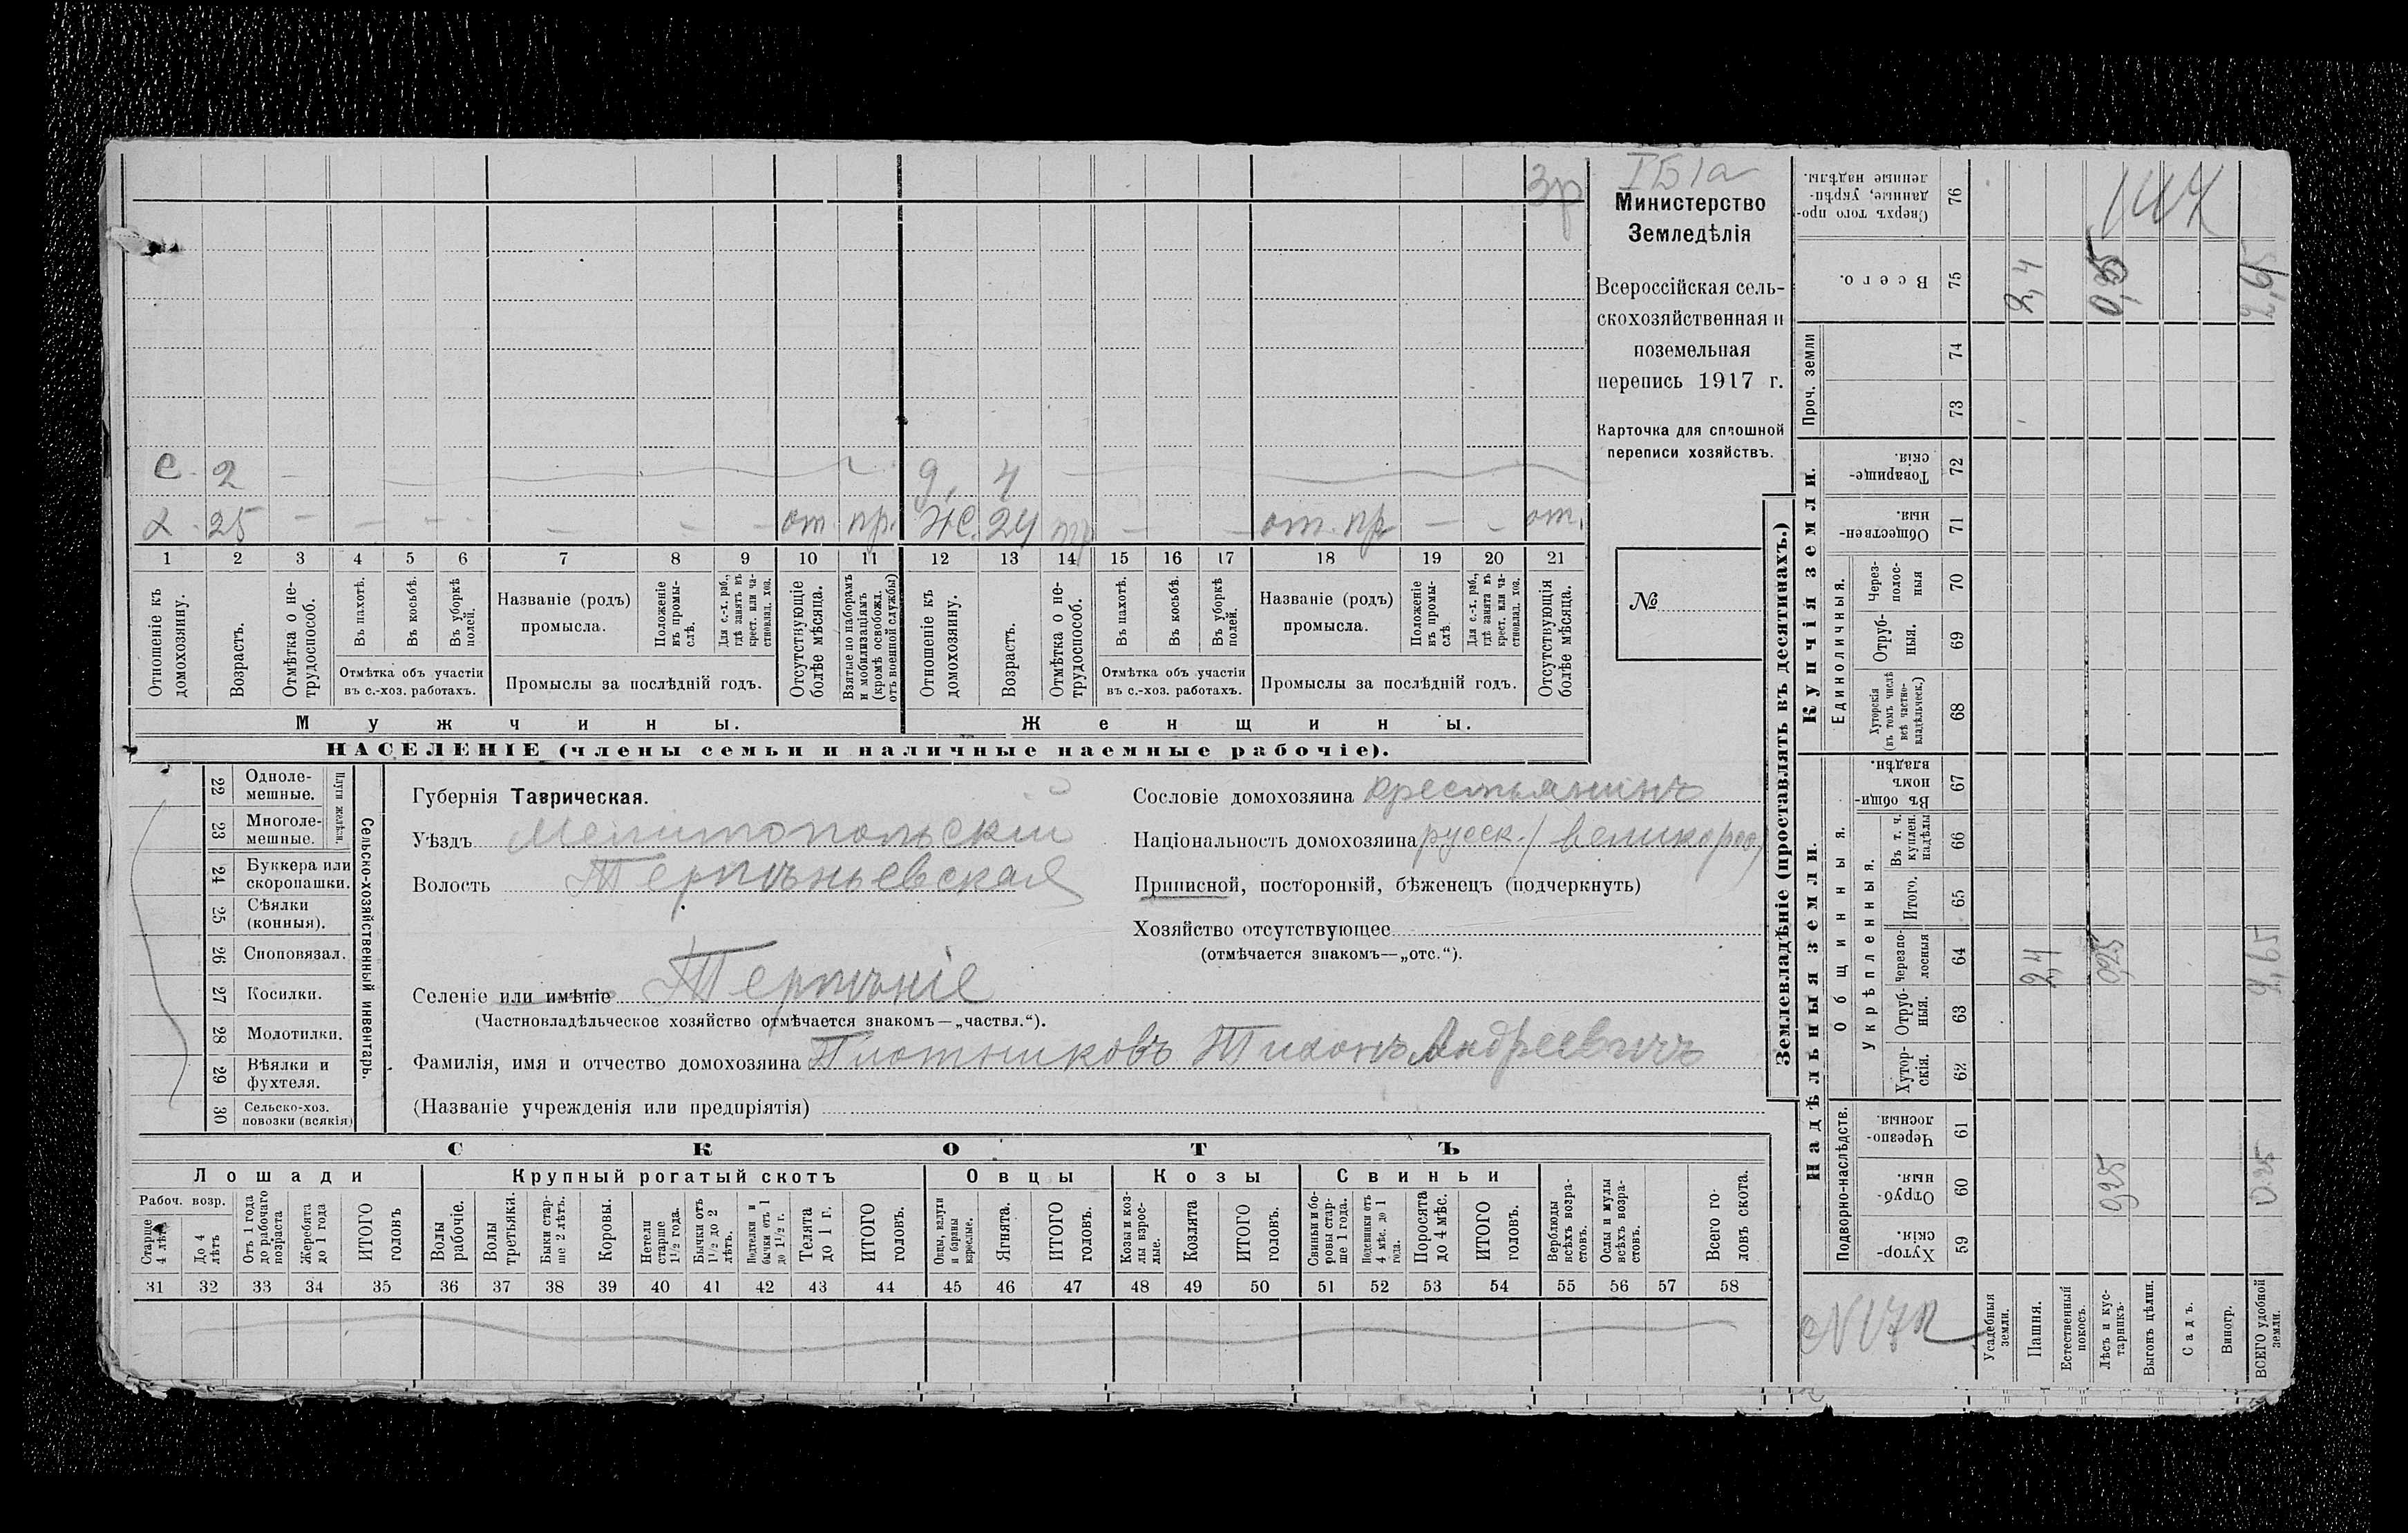 Зр
IБ1а
Министерство
Земледѣлія
Всероссійская сель-
скохозяйственная и
поземельная
перепись 1917 г.
Карточка для сплошной
переписи хозяйствъ.
№
с. 2 д. 4
25 от. пр. Ж. 24 пр от. пр от.
1 2 3 4 5 6 7 8 9 10 11 12 13 14 15 16 17 18 19 20 21
Отношеніе къ домохозяину.
Возрастъ.
Отмѣтка о не-трудоспособ.
Въ пахотѣ.
Въ косьбѣ.
Въ уборкѣ полей.
Отмѣтка объ участіи
въ с.-хоз. работахъ.
Названіе (родъ)
промысла.
Положеніе въ промы-слѣ.
Для с.-х. раб., гдѣ занятъ въ крест. или ча-стновлад. хоз.
Промыслы за послѣдній годъ.
Отсутствующіе болѣе мѣсяца.
Взятые по наборамъ и мобилизаціямъ (кромѣ освобожд. отъ военной службы)
Отношеніе къ домохозяину.
Возрастъ.
Отмѣтка о не-трудоспособ.
Въ пахотѣ.
Въ косьбѣ.
Въ уборкѣ полей.
Отмѣтка объ участіи
въ с.-хоз. работахъ.
Названіе (родъ)
промысла.
Положеніе въ промы-слѣ.
Для с.-х. раб., гдѣ занята въ крест. или ча-стновлад. хоз.
Промыслы за послѣдній годъ.
Отсутствующія болѣе мѣсяца.
Мужчины. Женщины.
НАСЕЛЕНІЕ (члены семьи и наличные наемные рабочіе).
Сельско-хозяйственный инвентарь.
Плуги желѣзн.
22 Одноле-
мешные.
23 Многоле-
мешные.
24 Буккера или
скоропашки.
25 Сѣялки
(конныя).
26 Сноповязал.
27 Косилки.
28 Молотилки.
29 Вѣялки и
фухтеля.
30 Сельско-хоз.
повозки (всякія)
Губернія Таврическая.
Уѣздъ Мелитопольскій
Волость Терпѣньевская
Селеніе или имѣніе Терпѣніе
(Частновладѣльческое хозяйство отмѣчается знакомъ—„частвл.“).
Фамилія, имя и отчество домохозяина Плотниковъ Тихонъ Андреевичъ
(Названіе учрежденія или предпріятія)
Сословіе домохозяина крестьянинъ
Національность домохозяина русск. (великоросс)
Приписной, посторонній, бѣженецъ (подчеркнуть)
Хозяйство отсутствующее
(отмѣчается знакомъ—„отс.“).
СКОТЪ
Лошади Крупный рогатый скотъ Овцы Козы Свиньи
Рабоч. возр.
Старше 4 лѣтъ
До 4 лѣтъ
Отъ 1 года до рабочаго возраста
Жеребята до 1 года
ИТОГО головъ
Волы рабочіе.
Волы третьяки.
Быки стар-ше 2 лѣтъ.
Коровы.
Нетели старше 1 1/2 года.
Бычки отъ 1 1/2 до 2 лѣтъ.
Подтелки и бычки отъ 1 до 1 1/2 г.
Телята до 1 г.
ИТОГО головъ.
Овцы, валухи и бараны взрослые.
Ягнята.
ИТОГО головъ.
Козы и коз-лы взрос-лые.
Козлята
ИТОГО головъ.
Свиньи и бо-ровы стар-ше 1 года.
Подсвинки отъ 4 мѣс. до 1 года.
Поросята до 4 мѣс.
ИТОГО головъ.
Верблюды всѣхъ возра-стовъ.
Ослы и мулы всѣхъ возра-стовъ.
Всего го-ловъ скота.
31 32 33 34 35 36 37 38 39 40 41 42 43 44 45 46 47 48 49 50 51 52 53 54 55 56 57 58
Землевладѣніе (проставлять въ десятинахъ.)
Надѣльныя земли.
Купчія земли.
Проч. земли
Подворно-наслѣдств.
Общинныя.
Укрѣпленныя.
Единоличныя.
Сверхъ того про-данные, укрѣп-ленные надѣлы. 76
Всего. 75 2,4 0,25 2,65
74
73
Товарище-скія. 72
Обществен-ныя. 71
Через-полос-ныя 70
Отруб-ныя. 69
Хуторскія (въ томъ числѣ всѣ частно-владѣльческ.) 68
Въ общи-номъ владѣн. 67
Въ т. ч. куплен. надѣлы 66
Итого. 65
Черезпо-лосныя 64 2,4 0,25 2,65
Отруб-ныя. 63
Хутор-скія. 62
Черезпо-лосныя. 61
Отруб-ныя. 60 0,25 0,25
Хутор-скія. 59
Усадебныя земли.
Пашня.
Естественный покосъ.
Лѣсъ и кус-тарникъ.
Выгонъ цѣлин.
Садъ.
Виногр.
ВСЕГО удобной земли.